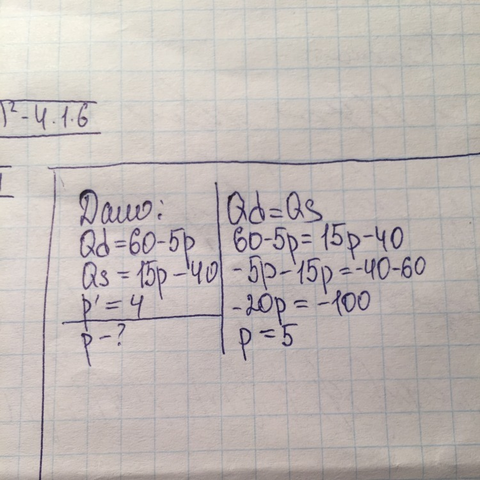 ² - 4 · 1 · 6
Дано:
Qd = 60 - 5p
Qs = 15p - 40
p' = 4
p - ?
Qd = Qs
60 - 5p = 15p - 40
-5p - 15p = -40 - 60
-20p = -100
p = 5